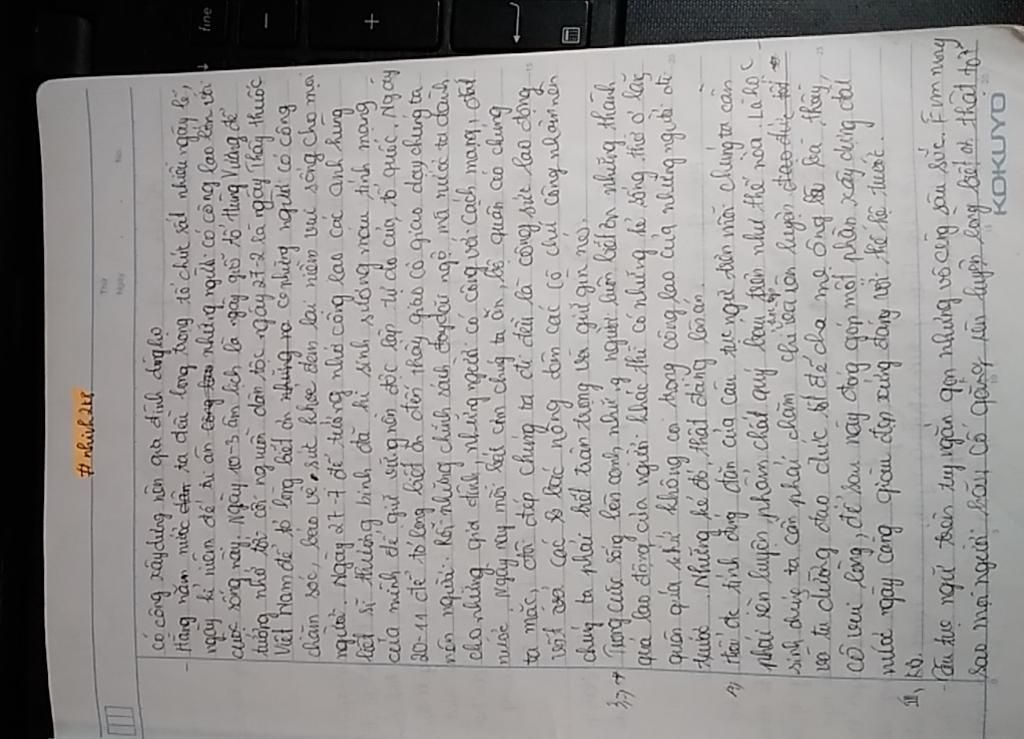 #nhinh2k8
Thứ
Ngày
No.
có công xây dựng nên gia đình dòng họ
- Hằng năm nước dân ta đều long trọng tổ chức rất nhiều ngày lễ,
ngày kỉ niệm để tri ân công lao những người có công lao lớn với
cuộc sống này. Ngày 10-3 âm lịch là ngày giỗ tổ Hùng Vương để
tưởng nhớ tới cội nguồn dân tộc ngày 27-2 là ngày Thầy thuốc
Việt Nam để tỏ lòng biết ơn những ra những người có công
chăm sóc, bảo vệ sức khỏe đem lại niềm vui sống cho mọi
người. Ngày 27-7 để tưởng nhớ công lao các anh hùng
liệt sĩ thương binh đã hi sinh xương máu tính mạng
của mình để giữ vững nền độc lập tự do của tổ quốc, Ngày
20-11 để tỏ lòng biết ơn đến thầy giáo cô giáo dạy chúng ta
nên người. Rồi những chính sách đãi ngộ mà nước ta dành
cho những gia đình, những người có công với Cách mạng, đất
nước Ngày nay mỗi bát cơm chúng ta ăn, bộ quần áo chúng
ta mặc, đôi dép chúng ta đi đều là công sức lao động
vất vả các bác nông dân các cô chú công nhân nên
chúng ta phải biết trân trọng và giữ gìn nó.
3, + Trong cuộc sống bên cạnh, những người luôn biết ơn những thành
quả lao động của người khác thì có những kẻ sống thờ ơ lãng
quên quá khứ không coi trọng công lao của những người đi
trước. Những kẻ đó, thật đáng lên án.
Thấy đc tính đúng đắn của câu tục ngữ trên mỗi chúng ta cần
phải rèn luyện phẩm chất quý báu trên như thế nào. Là học
sinh chúng ta cần phải chăm chỉ rèn luyện đạo đức
và tu dưỡng đạo đức tốt để cha mẹ ông bà thầy,
cô vui lòng, để sau này đóng góp một phần xây dựng đất
nước ngày càng giàu đẹp xứng đáng với thế hệ trước.
III, KB.
- Câu tục ngữ trên tuy ngắn gọn nhưng vô cùng sâu sắc. Em mong
sao mọi người hãy cố gắng rèn luyện lòng biết ơn thật tốt
KOKUYO
fine